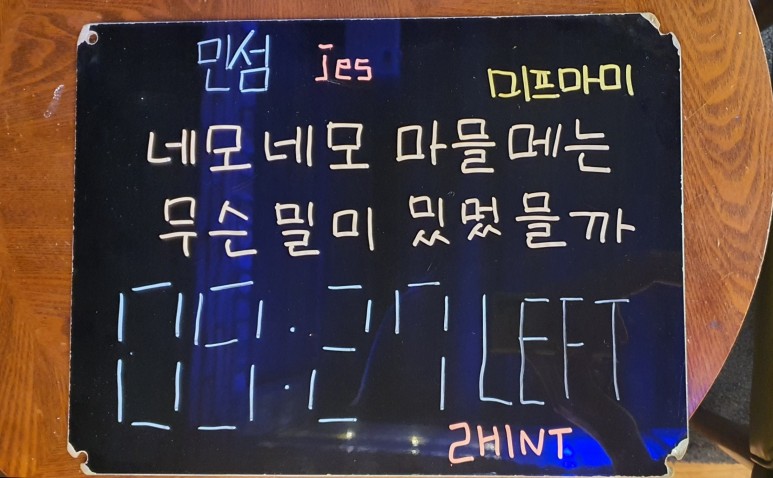 민섬 Jes 미프마미
네모네모 마믈메는
무슨 밀미 밌멌믈까
09:27 LEFT
2HINT